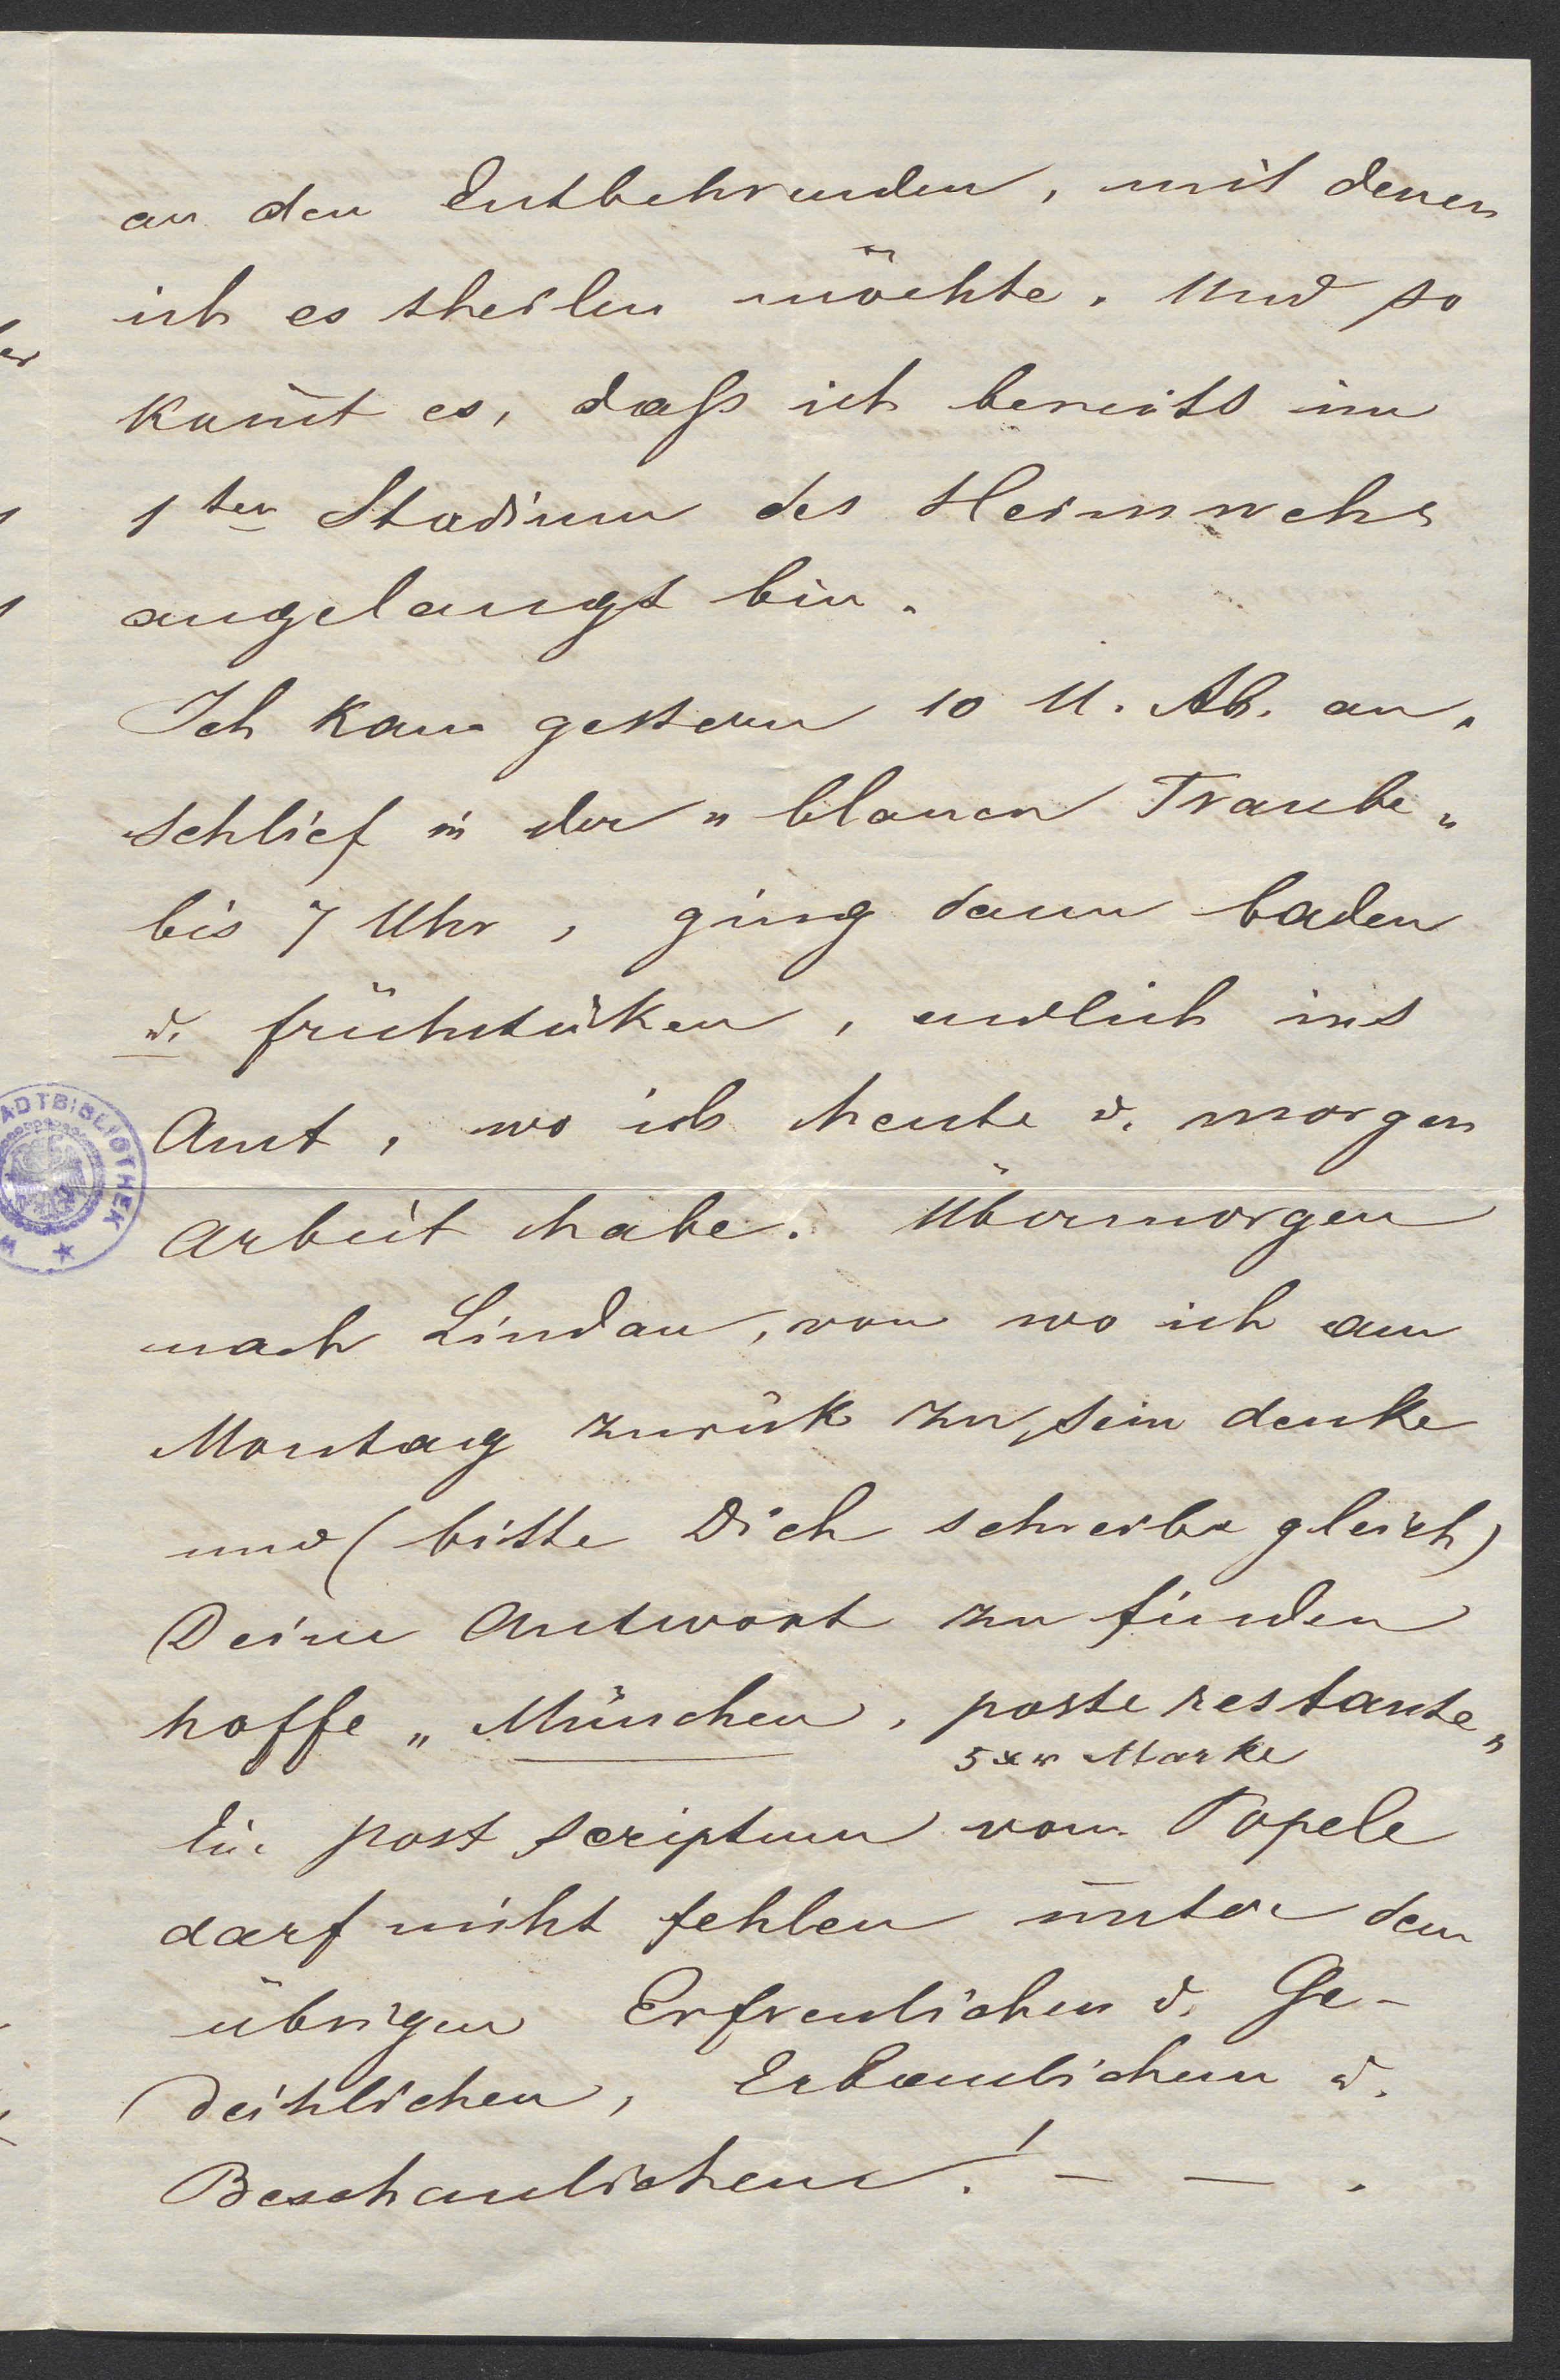 an den Entbehrenden, mit denen
ich es theilen möchte. Und so
kom̄t es, daß ich bereits im
1ten Stadium des Heimwehs
angelangt bin.
Ich kam gestern 10 U. Ab. an,
schlief in der "blauen Traube"
bis 7 Uhr, ging dann baden
u. frühstüken, endlich ins
Amt, wo ich heute u. morgen
Arbeit habe. Übermorgen
nach Lindau, von wo ich am
Montag zurük zu sein denke
und (bitte Dich schreibe gleich)
Deine Antwort zu finden
hoffe „München, poste restante"
5 xr Marke
Ein post scriptum vom Popele
darf nicht fehlen unter dem
übrigen Erfreulichen u. Ge-
deihlichen, Erbaulichem u.
Beschaulichem! — — .
ADTBIBLIOTHEK